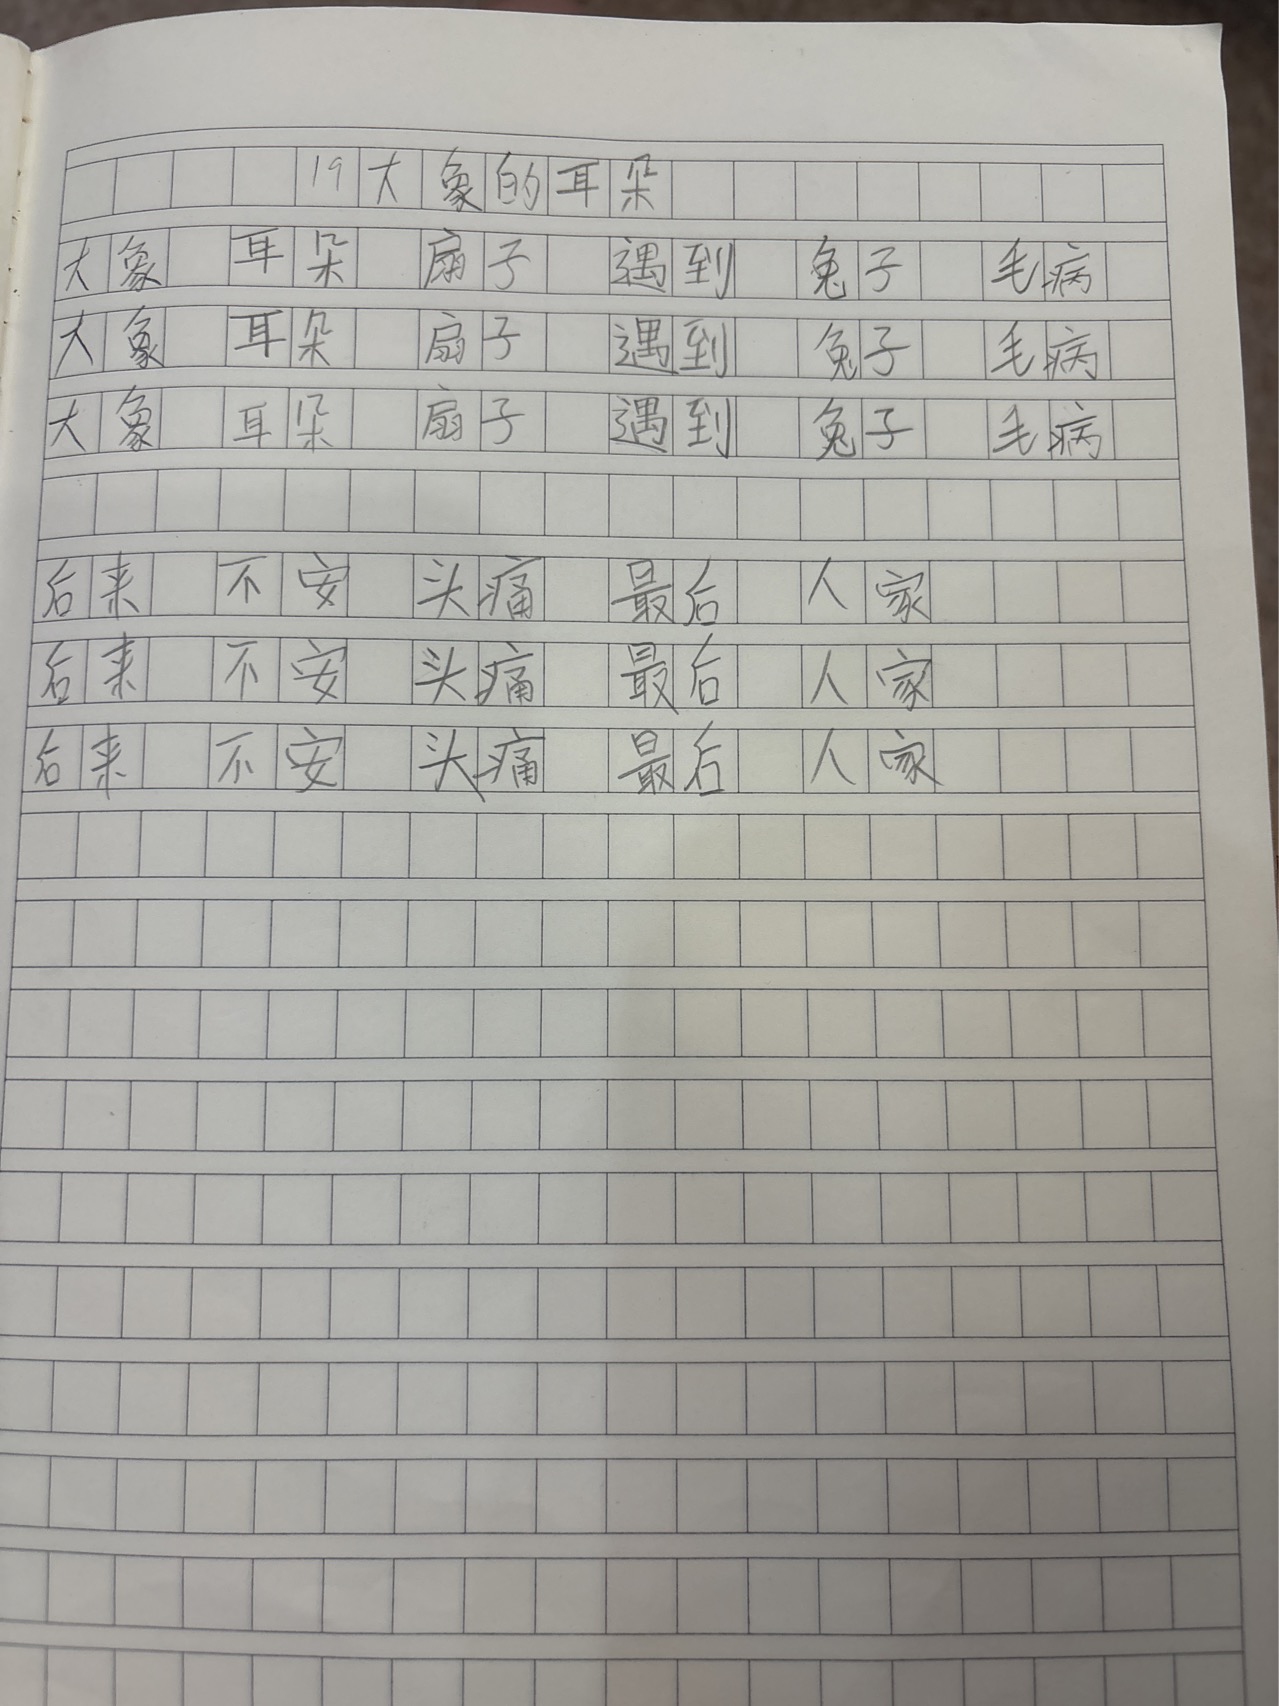 19大象的耳朵
大象 耳朵 扇子 遇到 兔子 毛病
大象 耳朵 扇子 遇到 兔子 毛病
大象 耳朵 扇子 遇到 兔子 毛病
后来 不安 头痛 最后 人家
后来 不安 头痛 最后 人家
后来 不安 头痛 最后 人家